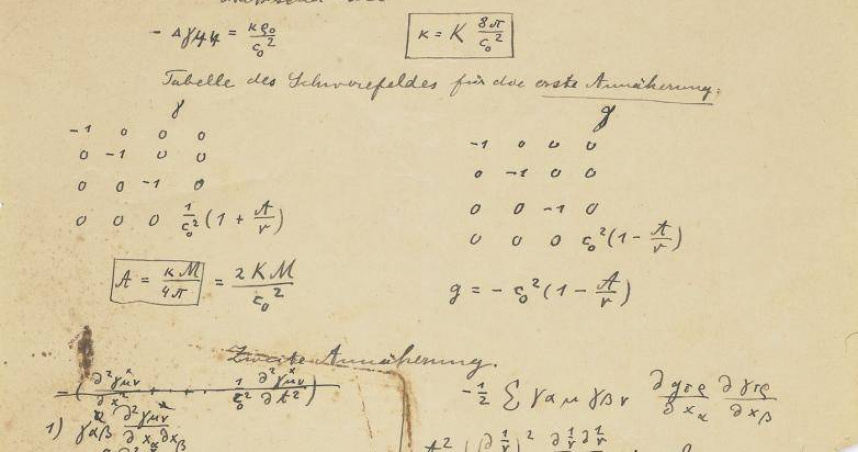 - Δγ44 = κρ0/c0²
κ = K 8π/c0²
Tabelle des Schwerefeldes für die erste Annäherung:
γ
-1 0 0 0
0 -1 0 0
0 0 -1 0
0 0 0 1/c0² (1 + A/r)
g
-1 0 0 0
0 -1 0 0
0 0 -1 0
0 0 0 c0² (1 - A/r)
A = κM/4π = 2KM/c0²
g = - c0² (1 - A/r)
Zweite Annäherung.
- (∂²γμν^x/∂x² + . . . . 1/c0² ∂²γμν^x/∂t²)
1) γαβ ∂²γμν/∂xα∂xβ
-1/2 Σ γαμ γβν ∂gτρ/∂xα ∂γτρ/∂xβ